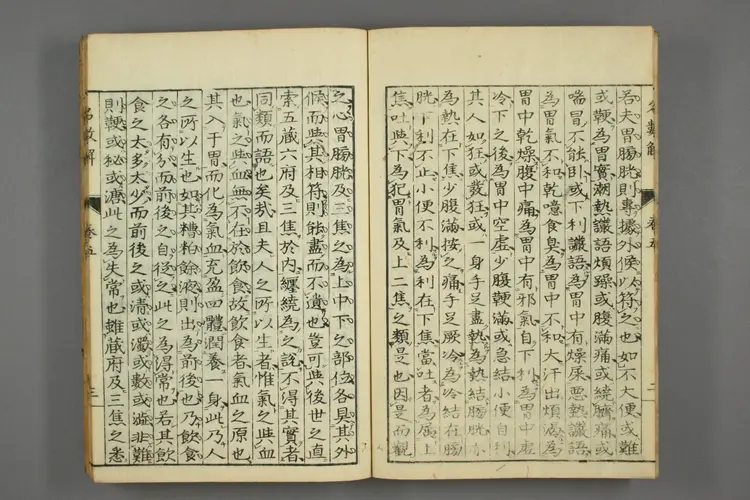 若夫胃腸胱則專據外候以符之也如不大便或難
或鞕為胃實潮熱譫語煩躁或腹滿痛或繞臍痛或
喘冒不能臥或下利譫語為胃中有燥屎惡熱譫語
為胃氣不和乾噫食臭為胃中不和大汗出煩渴為
胃中乾燥腹中痛為胃中有邪氣自下利為胃中虛
冷下之後為胃中空虛少腹鞕滿或急結小便自利
其人如狂或發狂或一身手足盡熱為熱結膀胱亦
為熱在下焦少腹滿按之痛手足厥冷為冷結在膀
胱下利不止小便不利為利在下焦當吐者為屬上
焦吐與下為犯胃氣及上二焦之類是也因是而觀
之心胃腸胱及三焦之為上中下之部位各具其外
候而與其相符則能盡而不遺也豈可與後世之直
索五藏六府及三焦於內纏繞為之說不得其實者
同類而語也矣哉且夫人之所以生者惟氣之與血
也氣之與血無不在於飲食故飲食者氣血之原也
其入于胃而化為氣血充盈四體潤養一身此乃人
之所以生也如其糟粕餘液則出為前後也乃飲食
之各有分而前後之自從之此之為得常也若其飲
食之太多太少而前後之或清或濁或數或澁非難
則鞕或秘或溏此之為失常也雖藏府及三焦之悉
名數解
卷五